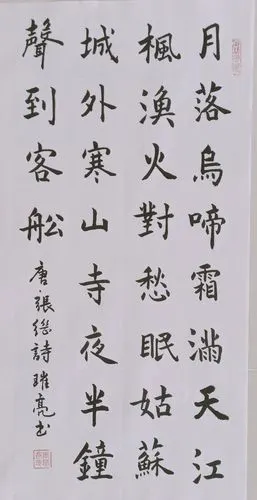 月落烏啼霜滿天江
楓漁火對愁眠姑蘇
城外寒山寺夜半鐘
聲到客船
唐張繼詩璀亮书